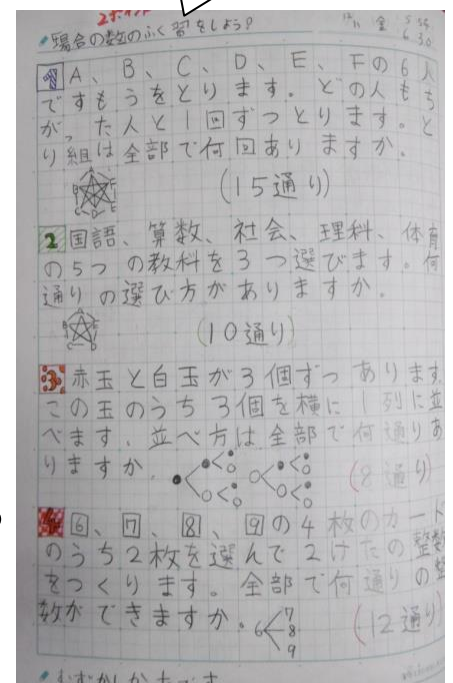 2ポイント
場合の数のふく習をしよう?
12/11 金
1 A、B、C、D、E、Fの6人
ですもうをとります。どの人もち
がった人と1回ずつとります。と
り組は全部で何回ありますか。
(15通り)
2 国語、算数、社会、理科、体育
の5つの教科を3つ選びます。何
通りの選び方がありますか。
(10通り)
3 赤玉と白玉が3個ずつあります。
この玉のうち3個を横に1列に並
べます、並べ方は全部で何通りあ
りますか。
(8通り)
4 6、7、8、9の4枚のカード
のうち2枚を選んで2けたの整数
をつくります。全部で何通りの整
数ができますか。
6 7 8 9
(12通り)